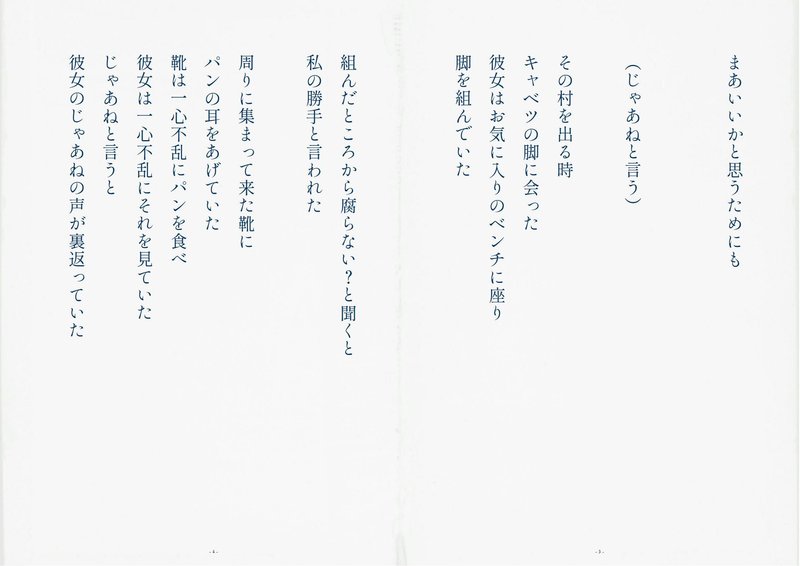 まあいいかと思うためにも
(じゃあねと言う)
その村を出る時
キャベツの脚に会った
彼女はお気に入りのベンチに座り
脚を組んでいた
-3-
組んだところから腐らない?と聞くと
私の勝手と言われた
周りに集まって来た靴に
パンの耳をあげていた
靴は一心不乱にパンを食べ
彼女は一心不乱にそれを見ていた
じゃあねと言うと
彼女のじゃあねの声が裏返っていた
-4-